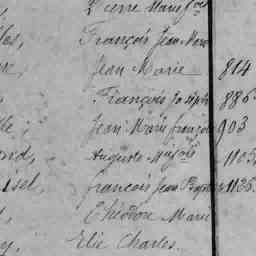 Pierre Marie Jos
les, François Jean Marie
re, Jean Marie 814
François Joseph 886
le, Jean Marie françois 903
nd, Auguste 1103
isel, francois Jean Baptiste 1126
Théodore Marie
y, Elie Charles.